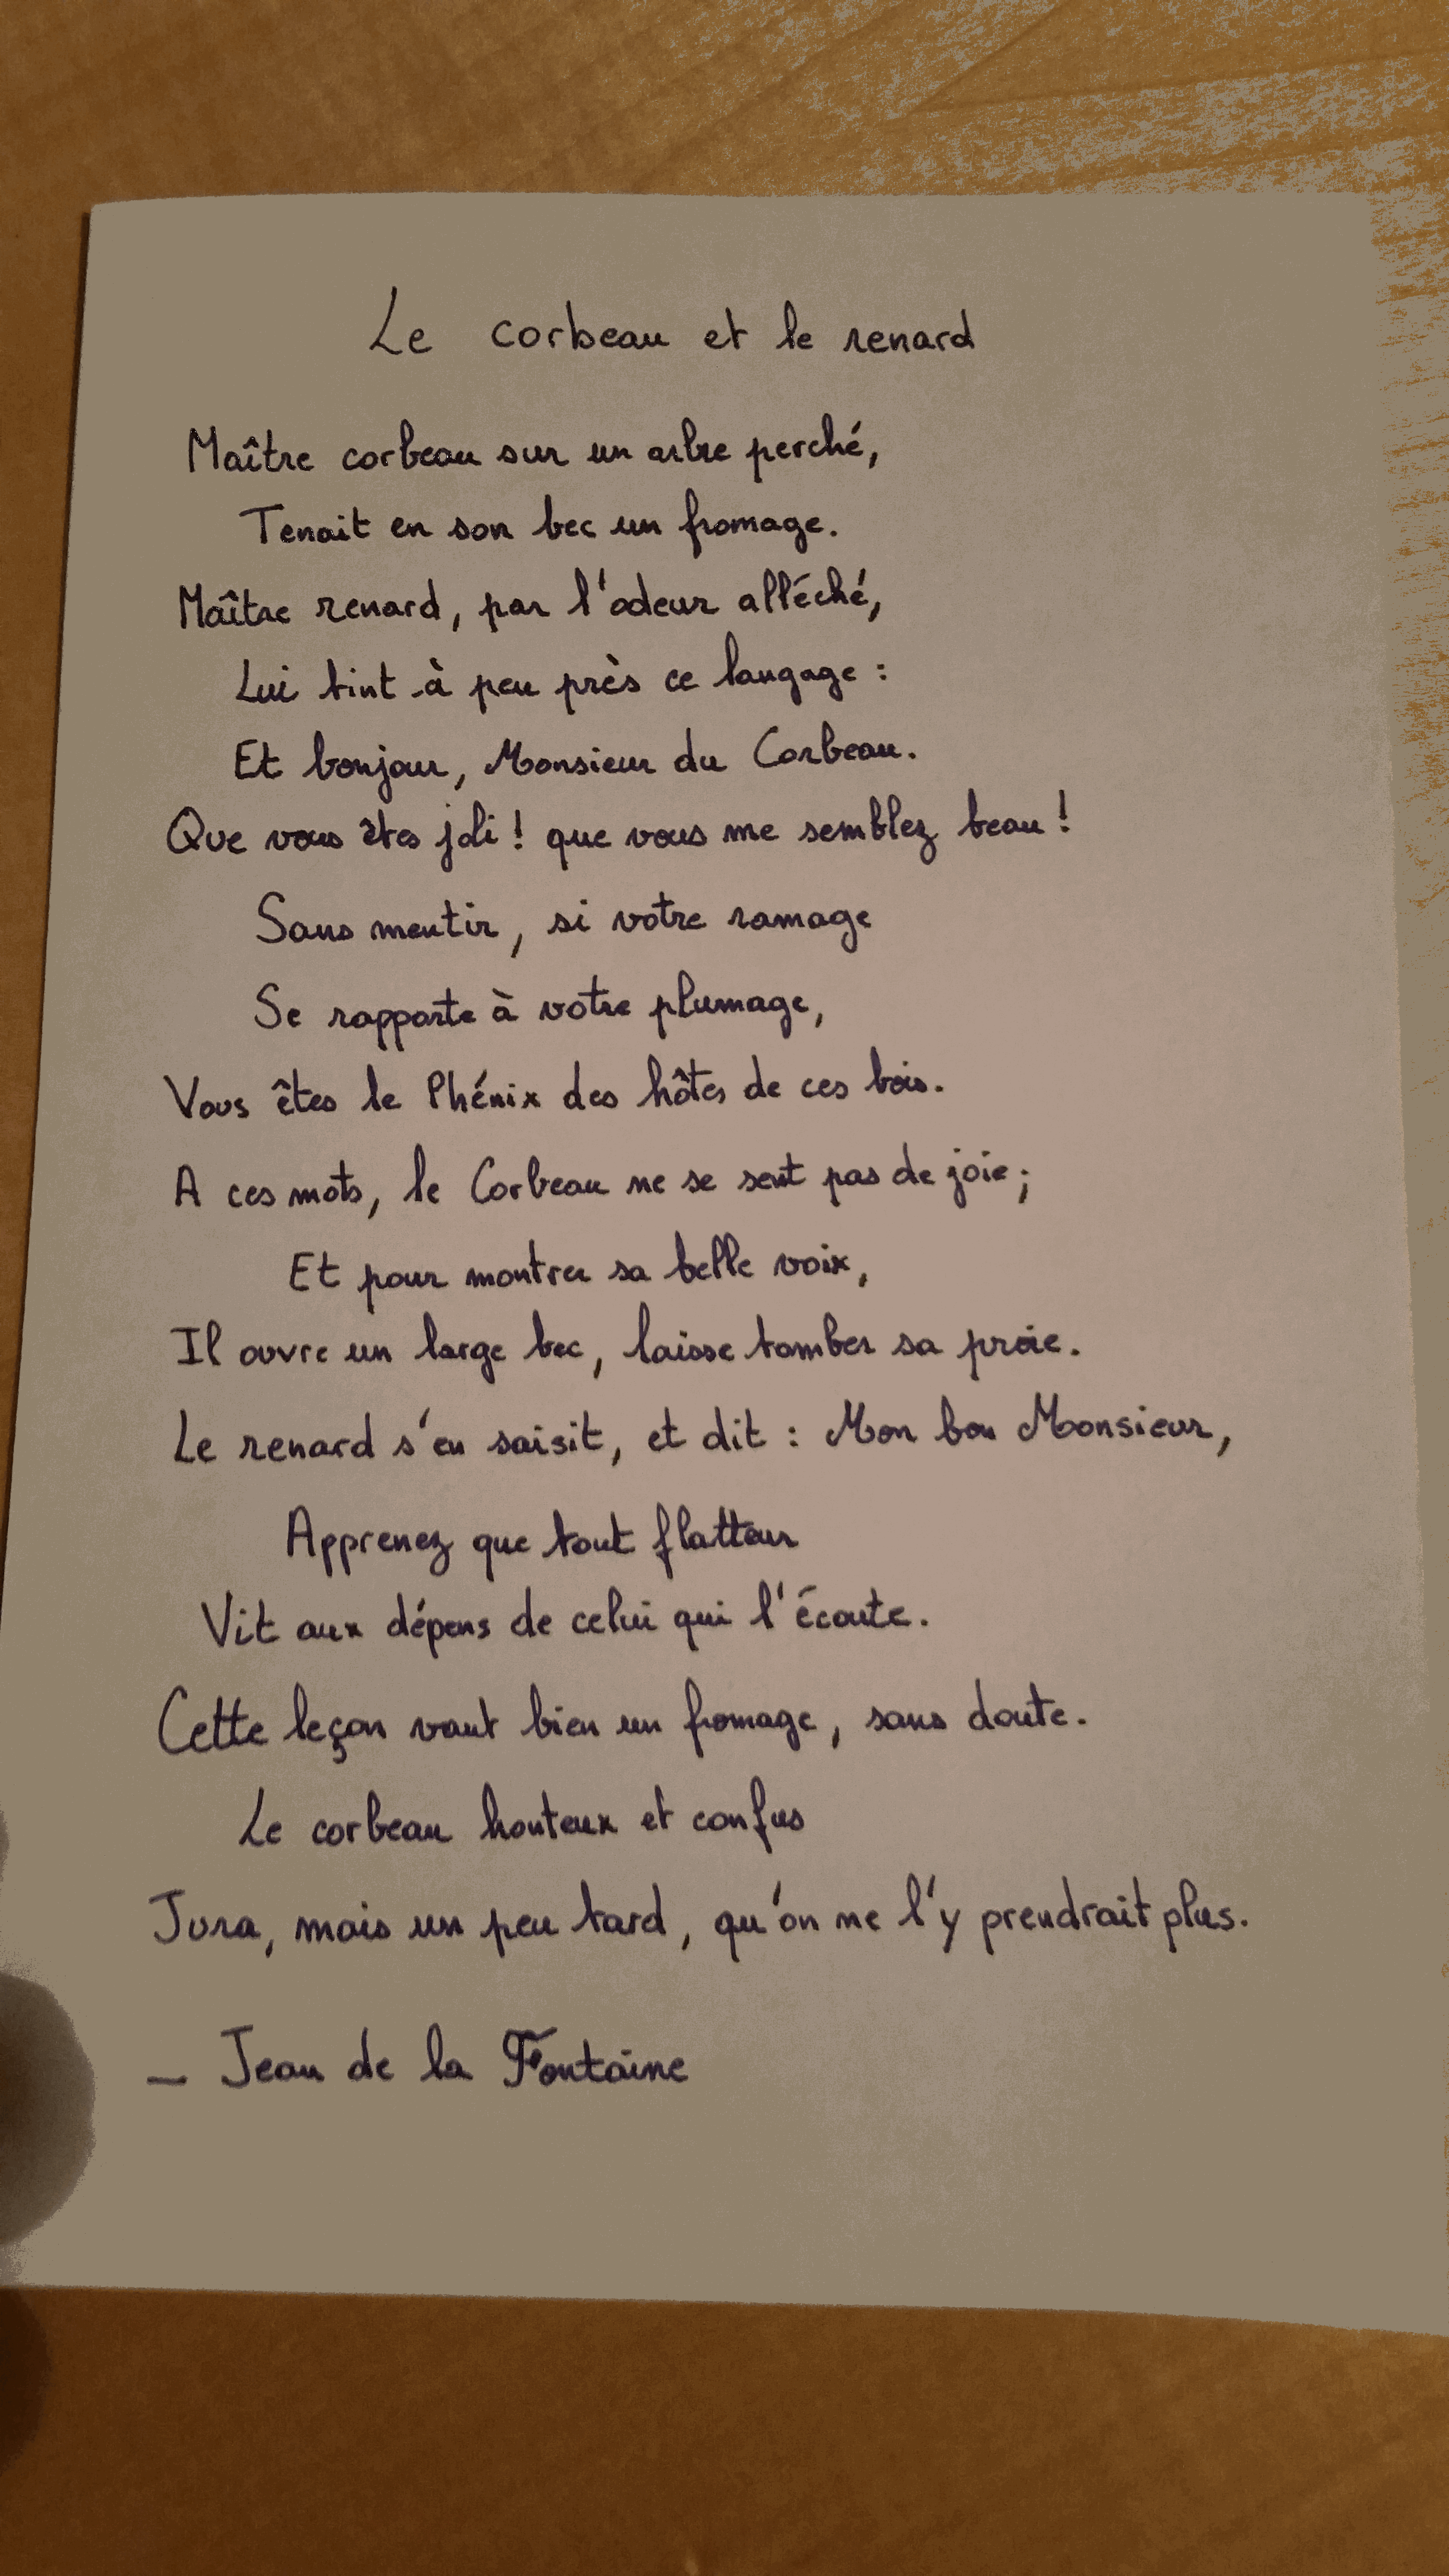 Le corbeau et le renard
Maître corbeau sur un arbre perché,
Tenait en son bec un fromage.
Maître renard, par l'odeur alléché,
Lui tint à peu près ce langage :
Et bonjour, Monsieur du Corbeau.
Que vous êtes joli ! que vous me semblez beau !
Sans mentir, si votre ramage
Se rapporte à votre plumage,
Vous êtes le Phénix des hôtes de ces bois.
A ces mots, le Corbeau ne se sent pas de joie ;
Et pour montrer sa belle voix,
Il ouvre un large bec, laisse tomber sa proie.
Le renard s'en saisit, et dit : Mon bon Monsieur,
Apprenez que tout flatteur
Vit aux dépens de celui qui l'écoute.
Cette leçon vaut bien un fromage, sans doute.
Le corbeau honteux et confus
Jura, mais un peu tard, qu'on ne l'y prendrait plus.
— Jean de la Fontaine